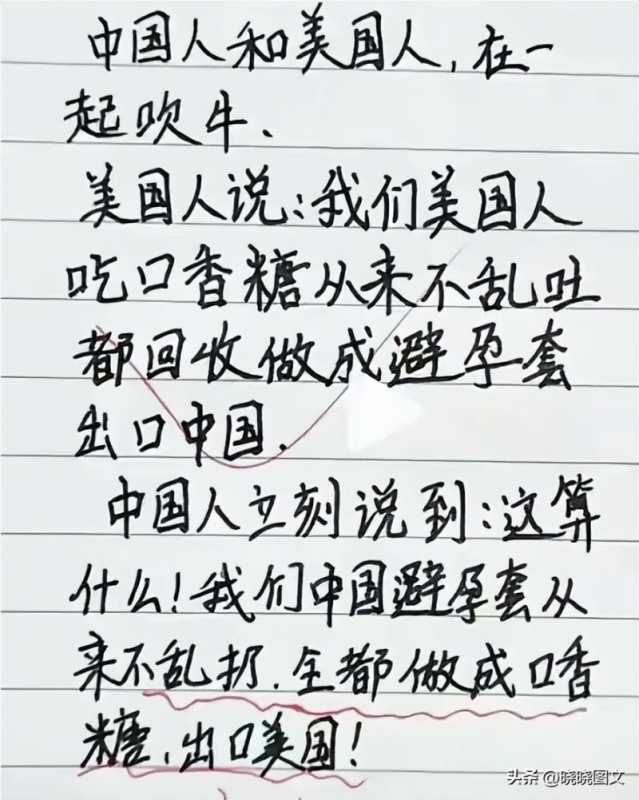 中国人和美国人，在一
起吹牛、
美国人说：我们美国人
吃口香糖从来不乱吐
都回收做成避孕套
出口中国.
中国人立刻说到：这算
什么！我们中国避孕套从
来不乱扔.全都做成口香
糖.出口美国！
头条 @晓晓图文